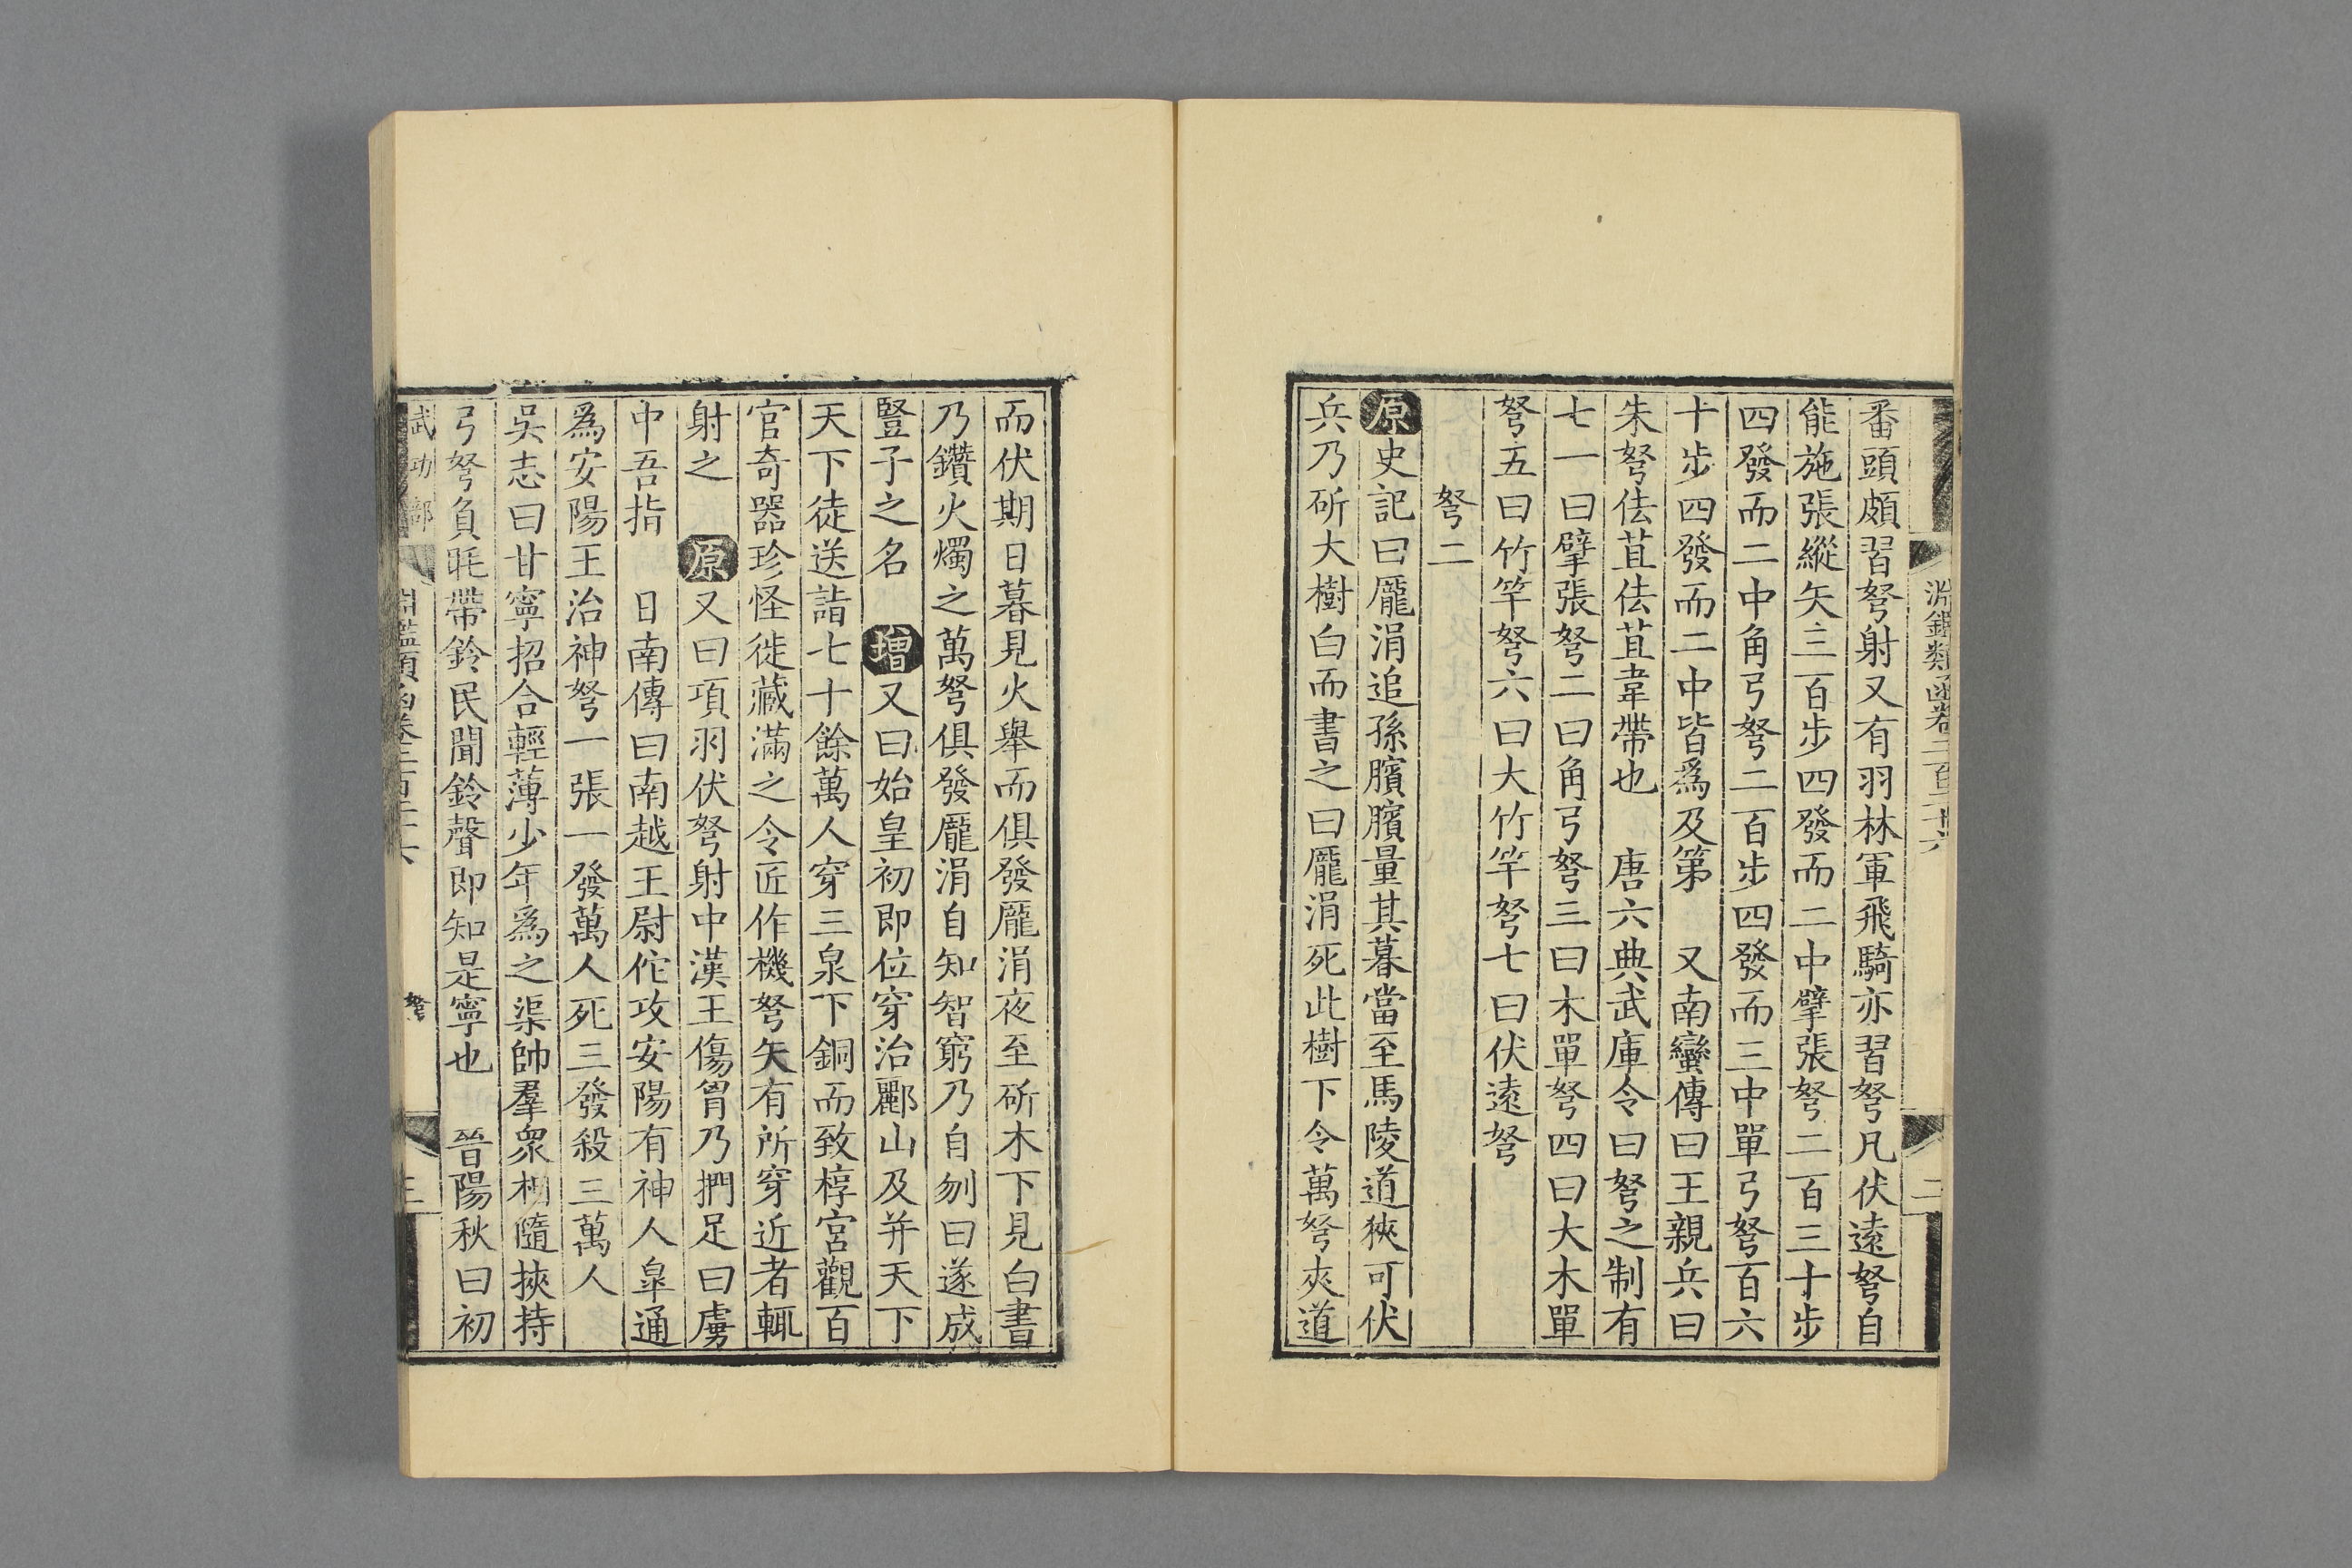 淵鑑類函卷二百二十六
二
番頭頗習弩射又有羽林軍飛騎亦習弩凡伏遠弩自
能施張縱矢三百步四發而二中擘張弩二百三十步
四發而二中角弓弩二百步四發而三中單弓弩百六
十步四發而二中皆爲及第 又南蠻傳曰王親兵曰
朱弩佉苴佉苴韋帶也 唐六典武庫令曰弩之制有
七一曰擘張弩二曰角弓弩三曰木單弩四曰大木單
弩五曰竹竿弩六曰大竹竿弩七曰伏遠弩
弩二
原史記曰龐涓追孫臏臏量其暮當至馬陵道狹可伏
兵乃斫大樹白而書之曰龐涓死此樹下令萬弩夾道
而伏期日暮見火舉而俱發龐涓夜至斫木下見白書
乃鑽火燭之萬弩俱發龐涓自知智窮乃自刎曰遂成
豎子之名 增又曰始皇初即位穿治酈山及并天下
天下徒送詣七十餘萬人穿三泉下銅而致椁宮觀百
官奇器珍怪徙藏滿之令匠作機弩矢有所穿近者輒
射之 原又曰項羽伏弩射中漢王傷胷乃捫足曰虜
中吾指 日南傳曰南越王尉佗攻安陽有神人臯通
爲安陽王治神弩一張一發萬人死三發殺三萬人
吳志曰甘寧招合輕薄少年爲之渠帥羣衆相隨挾持
弓弩負毦帶鈴民聞鈴聲即知是寧也 晉陽秋曰初
武功部 淵鑑類函卷二百二十六 弩 三